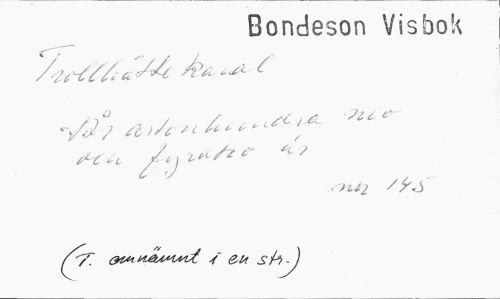 Bondeson Visbok
Trollhätte kanal
När artonhundra no
och fyratio år
nr 145
(T. omnämnt i en str.)